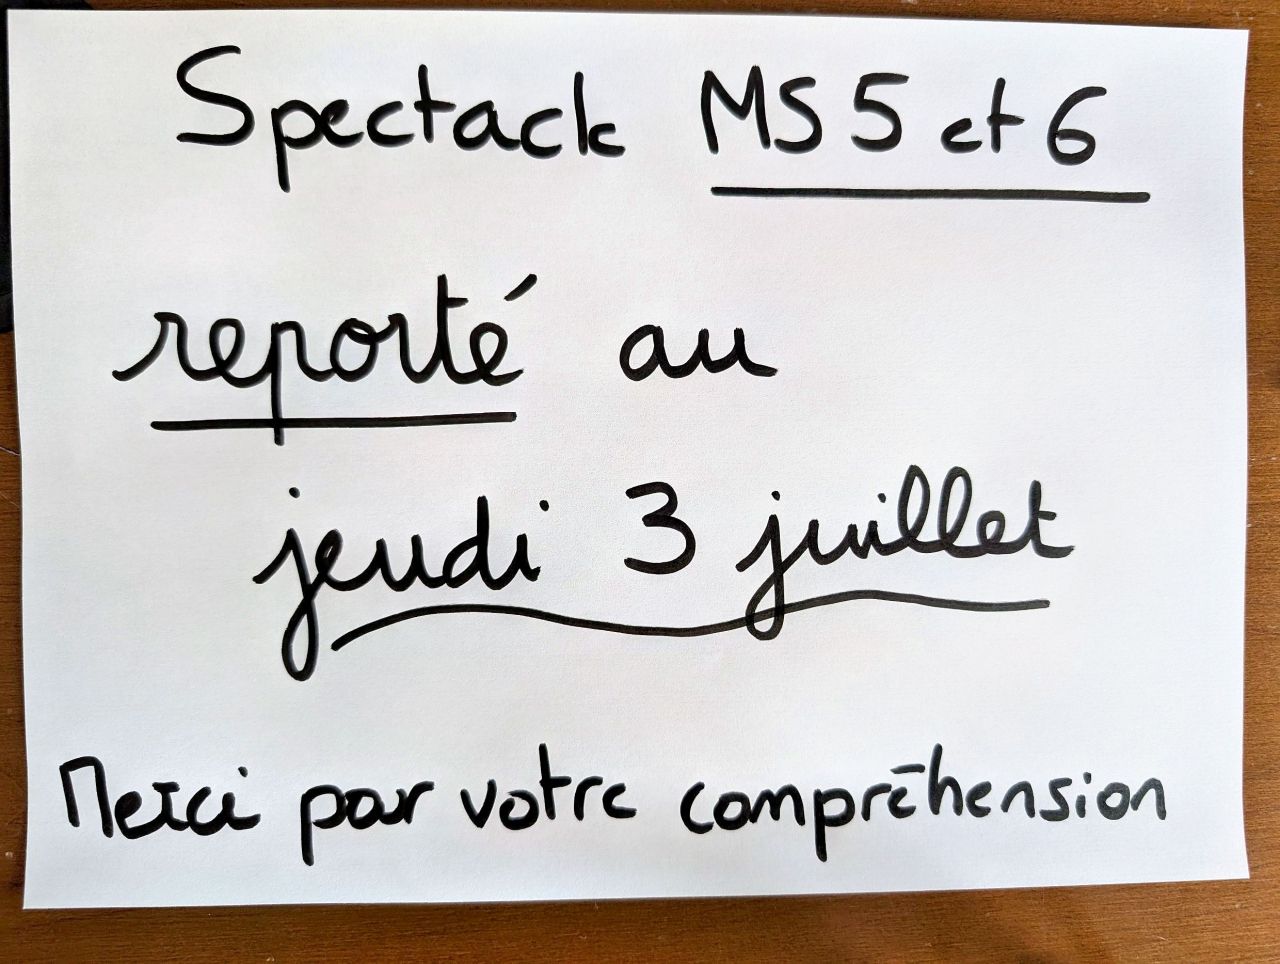 Spectacle MS 5 et 6
reporté au
jeudi 3 juillet
Merci pour votre compréhension